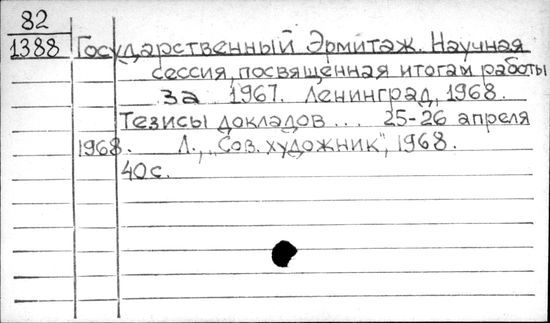 82
1388 Государственный Эрмитаж. Научная
сессия, посвященная итогам работы
за 1967. Ленинград, 1968.
Тезисы докладов... 25-26 апреля
1968. Л., „Сов. художник", 1968.
40с.